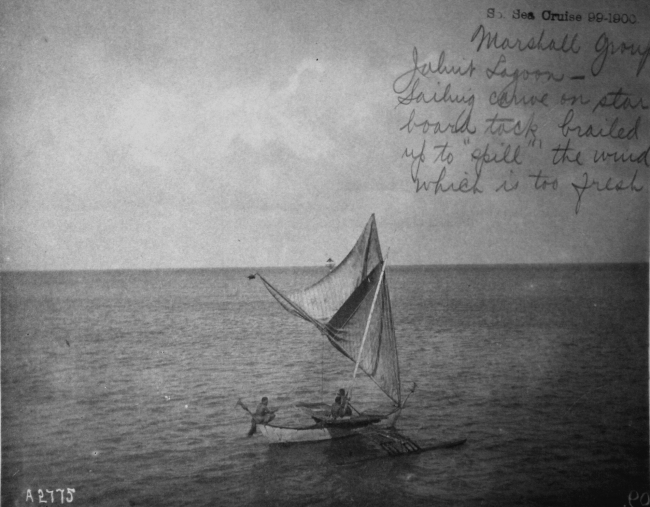 So. Sea Cruise 99-1900.
Marshall Group
Jaluit Lagoon –
Sailing canoe on star
board tack brailed
up to "spill" the wind
which is too fresh
A2775